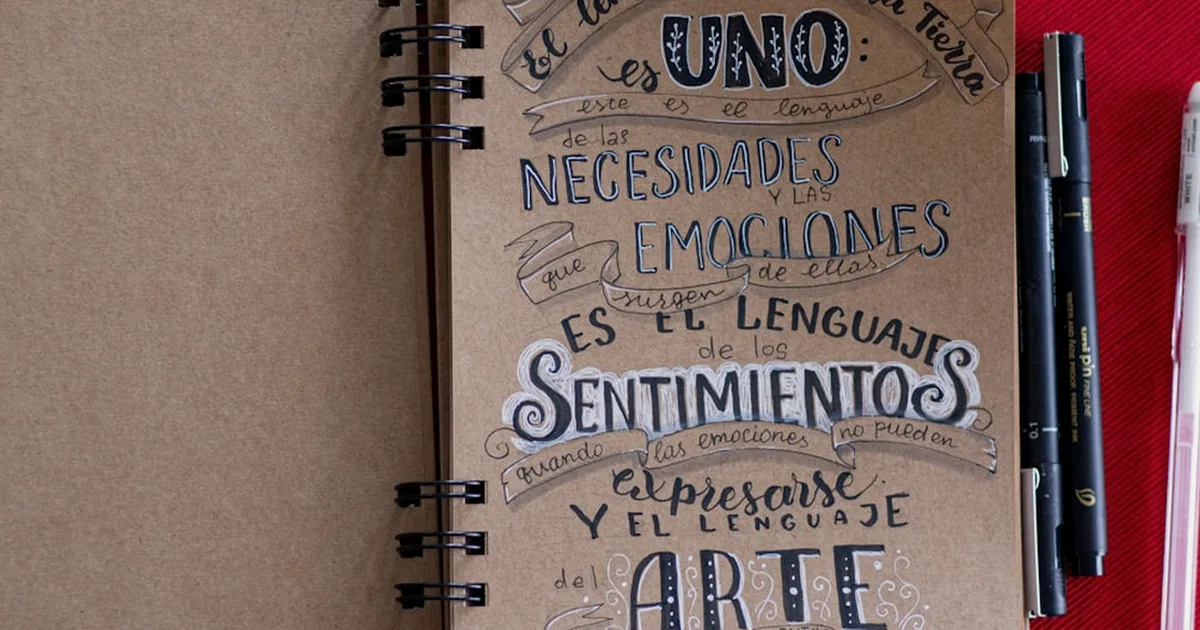 El
Tierra
es UNO:
este es el lenguaje
de las
NECESIDADES
Y LAS
EMOCIONES
que surgen de ellas.
ES EL LENGUAJE
de los
SENTIMIENTOS
quando las emociones no pueden
expresarse.
Y EL LENGUAJE
del ARTE
uni pin FINE LINE
WATER AND FADE PROOF PIGMENT INK
BRUSH
0.1